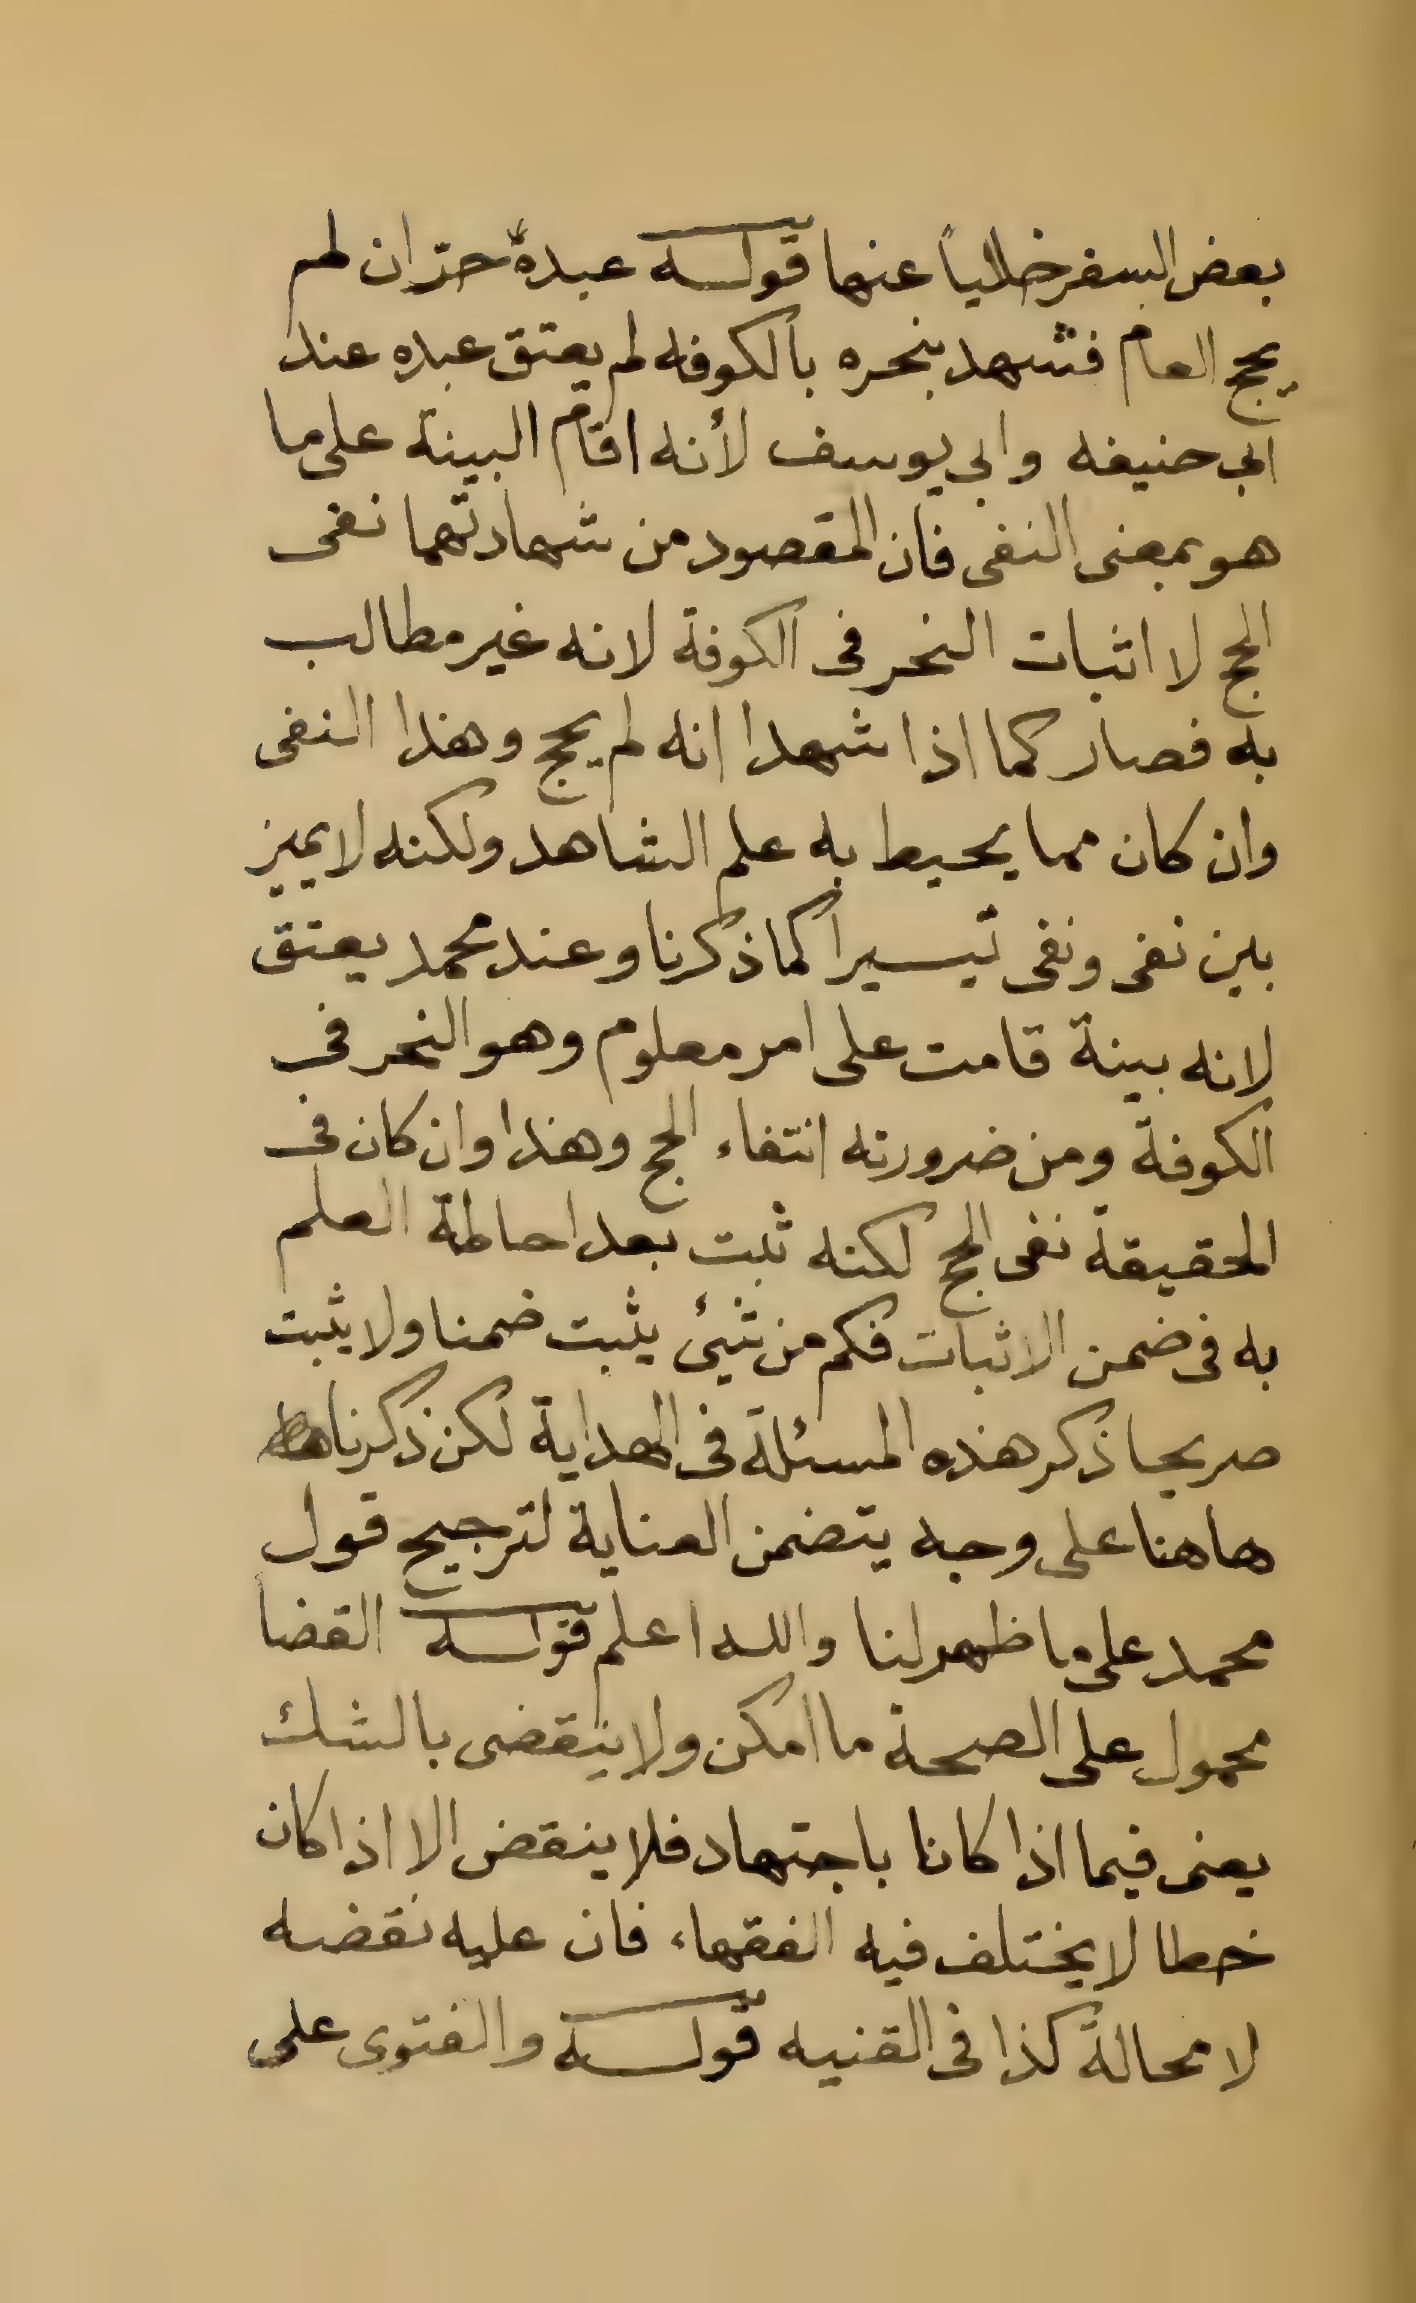 بعض السفر خالياً عنها قوله عبده حرّ ان لم
يحج العام فشهد بنحره بالكوفه لم يعتق عبده عند
ابي حنيفه وابي يوسف لأنه اقام البينة على ما
هو بمعنى النفى فان المقصود من شهادتهما نفى
الحج لا اثبات النحر فى الكوفة لانه غير مطالب
به فصار كما اذا شهدا انه لم يحج وهذا النفى
وان كان مما يحيط به علم الشاهد ولكنه لا يميز
بين نفى ونفى تيسيرا كما ذكرنا وعند محمد يعتق
لانه بينة قامت على امر معلوم وهو النحر فى
الكوفة ومن ضرورته انتفاء الحج وهذا وان كان فى
الحقيقة نفى الحج لكنه ثبت بعد احاطة العلم
به فى ضمن الاثبات فكم من شيئ يثبت ضمنا ولا يثبت
صريحا ذكر هذه المسئلة فى الهداية لكن ذكرناها
هاهنا على وجه يتضمن العناية لترجيح قول
محمد على ما ظهر لنا والله اعلم قوله القضا
محمول على الصحة ما امكن ولا ينقضى بالشك
يعنى فيما اذا كانا باجتهاد فلا ينقض الا اذا كان
خطا لا يختلف فيه الفقهاء فان عليه نقضه
لا محالة كذا فى القنيه قوله والفتوى على